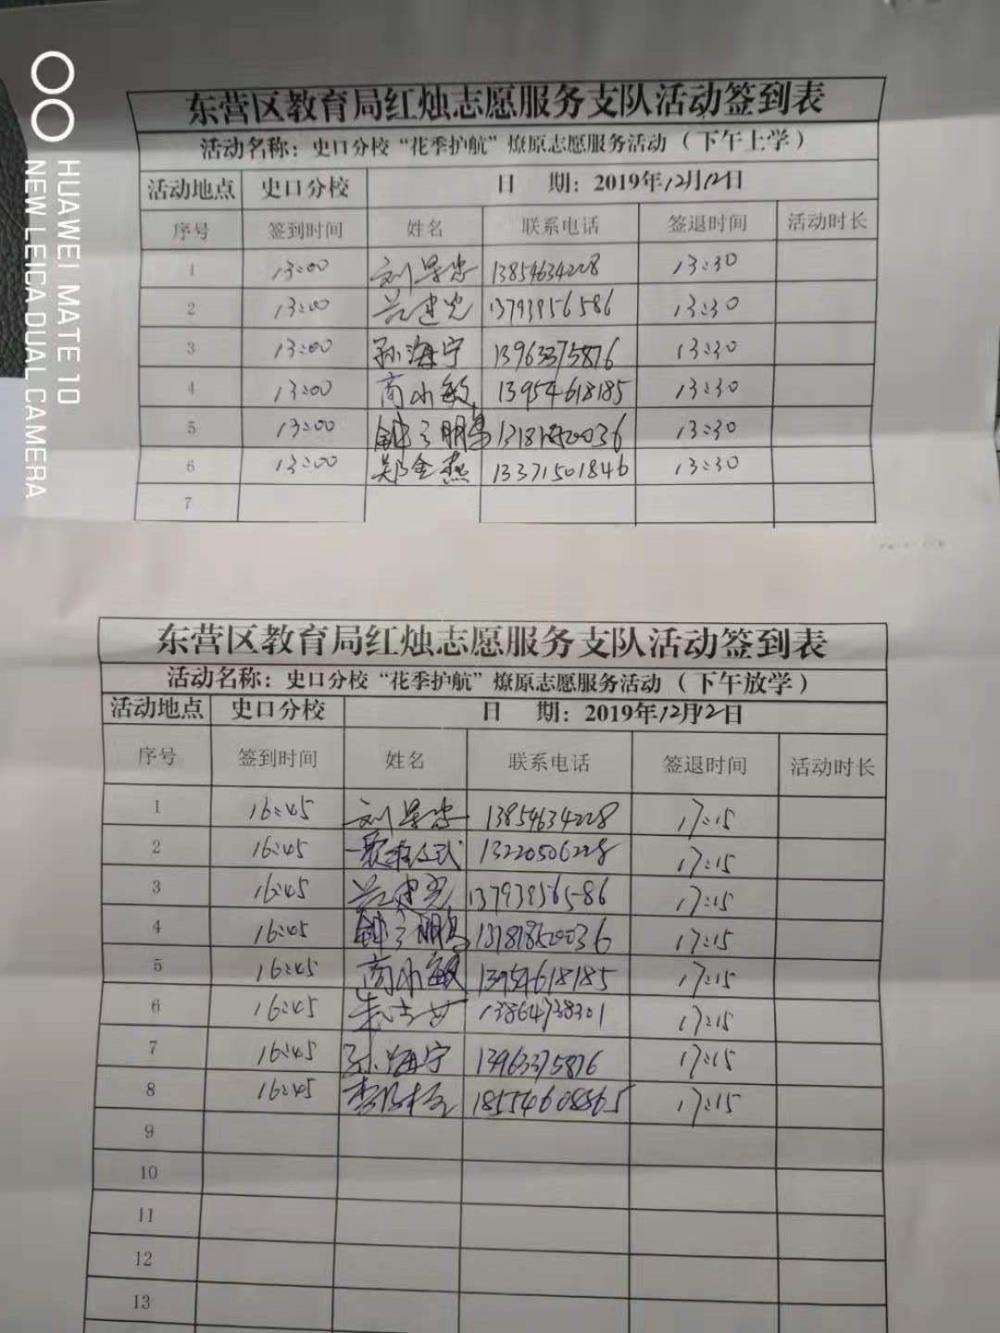 HUAWEI MATE 10
NEW LEICA DUAL CAMERA
东营区教育局红烛志愿服务支队活动签到表
活动名称：史口分校“花季护航”燎原志愿服务活动（下午上学）
活动地点 史口分校 日 期：2019年12月12日
序号 签到时间 姓名 联系电话 签退时间 活动时长
1 13:00 刘 13854634228 13:30
2 13:00 兰建光 13793956586 13:30
3 13:00 孙海宁 13963375876 13:30
4 13:00 商小敏 13954618185 13:30
5 13:00 13181850036 13:30
6 13:00 郑金燕 13371501846 13:30
7
东营区教育局红烛志愿服务支队活动签到表
活动名称：史口分校“花季护航”燎原志愿服务活动（下午放学）
活动地点 史口分校 日 期：2019年12月12日
序号 签到时间 姓名 联系电话 签退时间 活动时长
1 16:45 刘 13854634228 17:15
2 16:45 13220506228 17:15
3 16:45 兰建光 13793956586 17:15
4 16:45 13181850036 17:15
5 16:45 商小敏 13954618185 17:15
6 16:45 13864738301 17:15
7 16:45 孙海宁 13963375876 17:15
8 16:45 李 18554608865 17:15
9
10
11
12
13